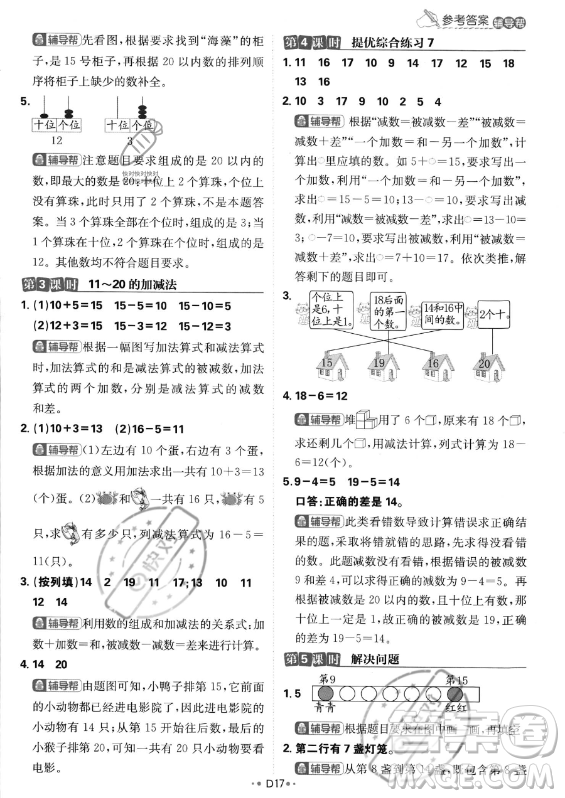 参考答案 辅导帮
辅导帮 先看图，要求找到“海藻”的柜
子，是15号柜子，再根据20以内数的排列顺
序将柜子上缺少的数补全。
5.
十位 个位 十位 个位
12 3
辅导帮 注意题目要求组成的是20以内的
数，即最大的数是20，十位上2个算珠，个位上
没有算珠，此时只用了2个算珠，不是本题答
案。当3个算珠全部在个位时，组成的是3；当1
个算珠在十位上，2个算珠在个位时，组成的是
12。其他数均不符合题目要求。
第3课时 11～20的加减法
1. (1)10+5=15 15-5=10 15-10=5
(2)12+3=15 15-3=12 15-12=3
辅导帮 根据一幅图写加法算式和减法算式
时，加法算式的和是减法算式的被减数，加法算
式的两个加数，分别是减法算式的减数
和差。
2. (1)10+3=13 (2)16-5=11
辅导帮 (1)左边有10个蛋，右边有3个蛋，
根据加法的意义用加法计算，列式为10+3=13
(个)。(2)和一共有16只，有5
只，求有多少只，列减法算式为16-5=
11(只)。
3. (按列填)14 2 19 11 17；13 10 11
12 14
辅导帮 利用数的组成和加减法的关系式：加
数+加数=和，被减数-减数=差来进行计算。
4. 14 20
辅导帮 由题图可知，小鸭子排第15，它前面
的小动物都已经进电影院了，因此进电影院的
小动物有14只；从第15开始往后数，最后面的
小猴子排第20，所以一共有20只小动物要看
电影。
第4课时 提优综合练习7
1. 11 16 12 17 12 15 18
13 16
2. 10 3 17 9 10 2 5 4
辅导帮 根据“减数=被减数-差”“被减数=
减数+差”“一个加数=和-另一个加数”，计
算出○里应填的数。以5+○=15，○=10为例，
○=15-5=10；13-○=10，求减数，
利用“减数=被减数-差”，求出○=13-10=
3；○-7=10，○是被减数，利用“被减数=减
数+差”，求出○=7+10=17。依次类推，
解答剩下的题目即可。
3.
个位上是6，十位上是1。
18后面的第一个数。
14和16中间的数。
2个十。
15 19 16 20
4. 18-6=12
辅导帮 堆用了6个，原来有18个，
求还剩几个，用减法计算，列式计算为18-
6=12(个)。
5. 9-4=5 19-5=14
口答：正确的差是14。
辅导帮 此类看错数导致计算错误求正确结
果的题型，采用将错就错的思路，先求出不变
量，再计算。此题减数没变，根据错误的被减数
9和差4，可以求出不变的减数为9-4=5。因
为题目要求的是20以内的减法，那么被减数十
位上一定是1，个位上是9，所以正确的差
为19-5=14。
第5课时 解决问题
1. 5
第9 第15
青青 红红
辅导帮 根据题目要求在图中画一画，再填空。
2. 第二行有7盏灯笼。
辅导帮 从第8盏到第14盏，既包含第8盏
D17